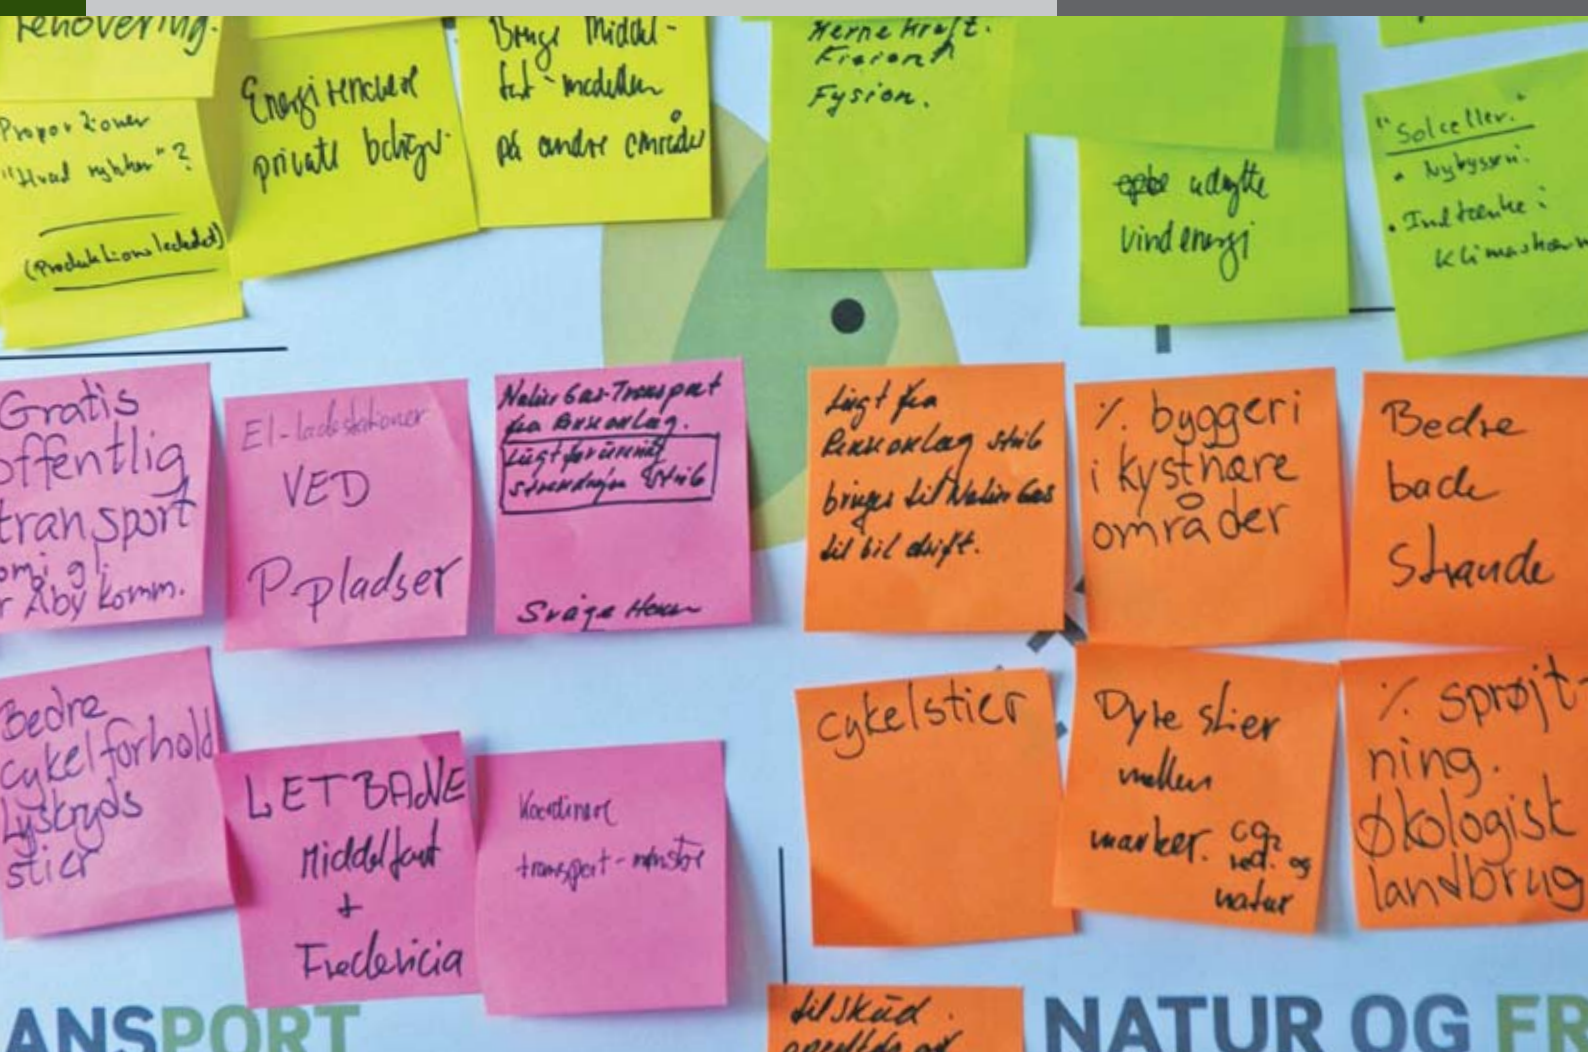 renovering.
Proportioner
"Hvad rykker"?
(Produktionsleddet)
Energirenovere
private boliger.
Bruge Middel-
fart-modellen
på andre områder
Kernekraft.
Fusion
Fysion.
udnytte
vindenergi
"Solceller."
• Nybyggeri.
• Indtænke i
Gratis
offentlig
transport
Åby komm.
El-ladestationer
VED
P-pladser
Natur Gas-Transport
fra Renseanlæg.
Lugt
Strib
Lugt fra
Renseanlæg Strib
bruges til Natur Gas
til bil drift.
⁒ byggeri
i kystnære
områder
Bedre
bade
Strande
Bedre
cykelforhold
Lyskryds
stier
LETBANE
Middelfart
+
Fredericia
Koordinere
transport-mønstre
cykelstier
Dyre stier
mellem
marker. CO2
red. og
natur
⁒ sprøjt-
ning.
Økologisk
landbrug
tilskud.
ANSPORT
NATUR OG FR